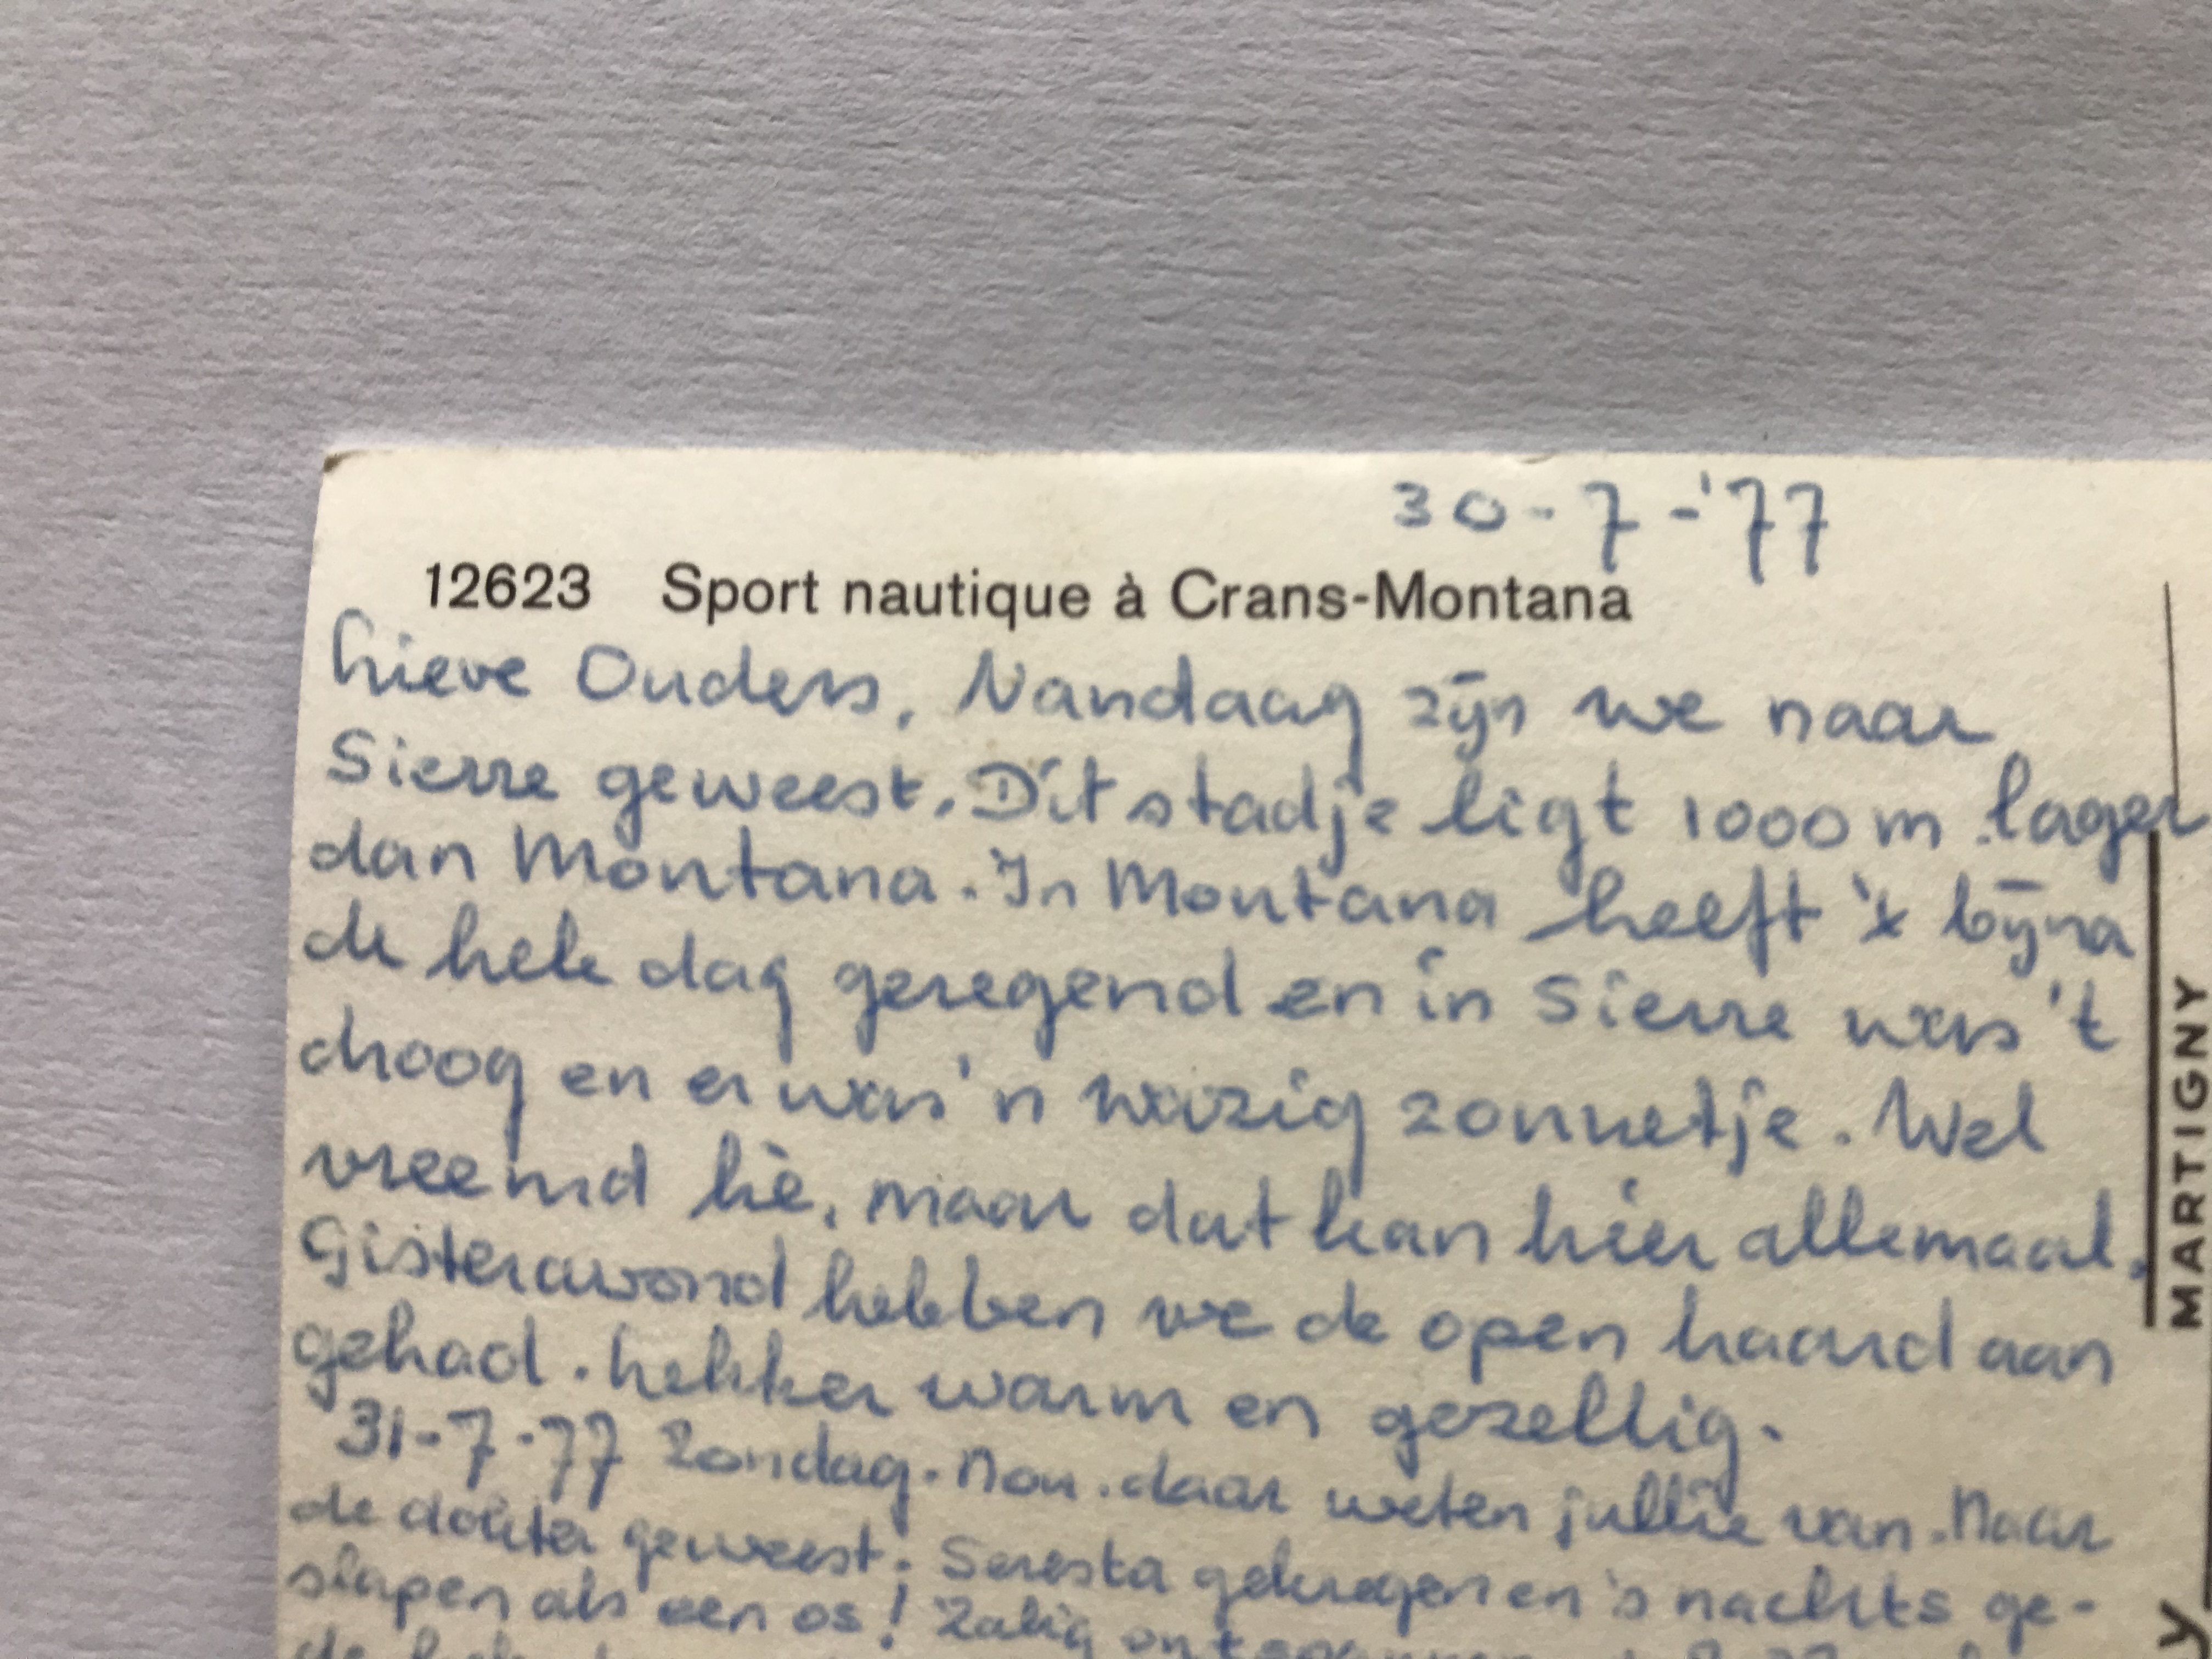 30-7-'77
12623 Sport nautique à Crans-Montana
Lieve Ouders, Vandaag zijn we naar
Sierre geweest. Dit stadje ligt 1000 m lager
dan Montana. In Montana heeft 't bijna
de hele dag geregend en in Sierre was 't
droog en er was 'n wazig zonnetje. Wel
vreemd hè, maar dat kan hier allemaal.
Gisteravond hebben we de open haard aan
gehad. Lekker warm en gezellig.
31-7-77 Zondag. Nou. daar weten jullie van. Naar
de dokter geweest. Seresta gekregen en 's nachts ge-
slapen als een os! Zalig
MARTIGNY